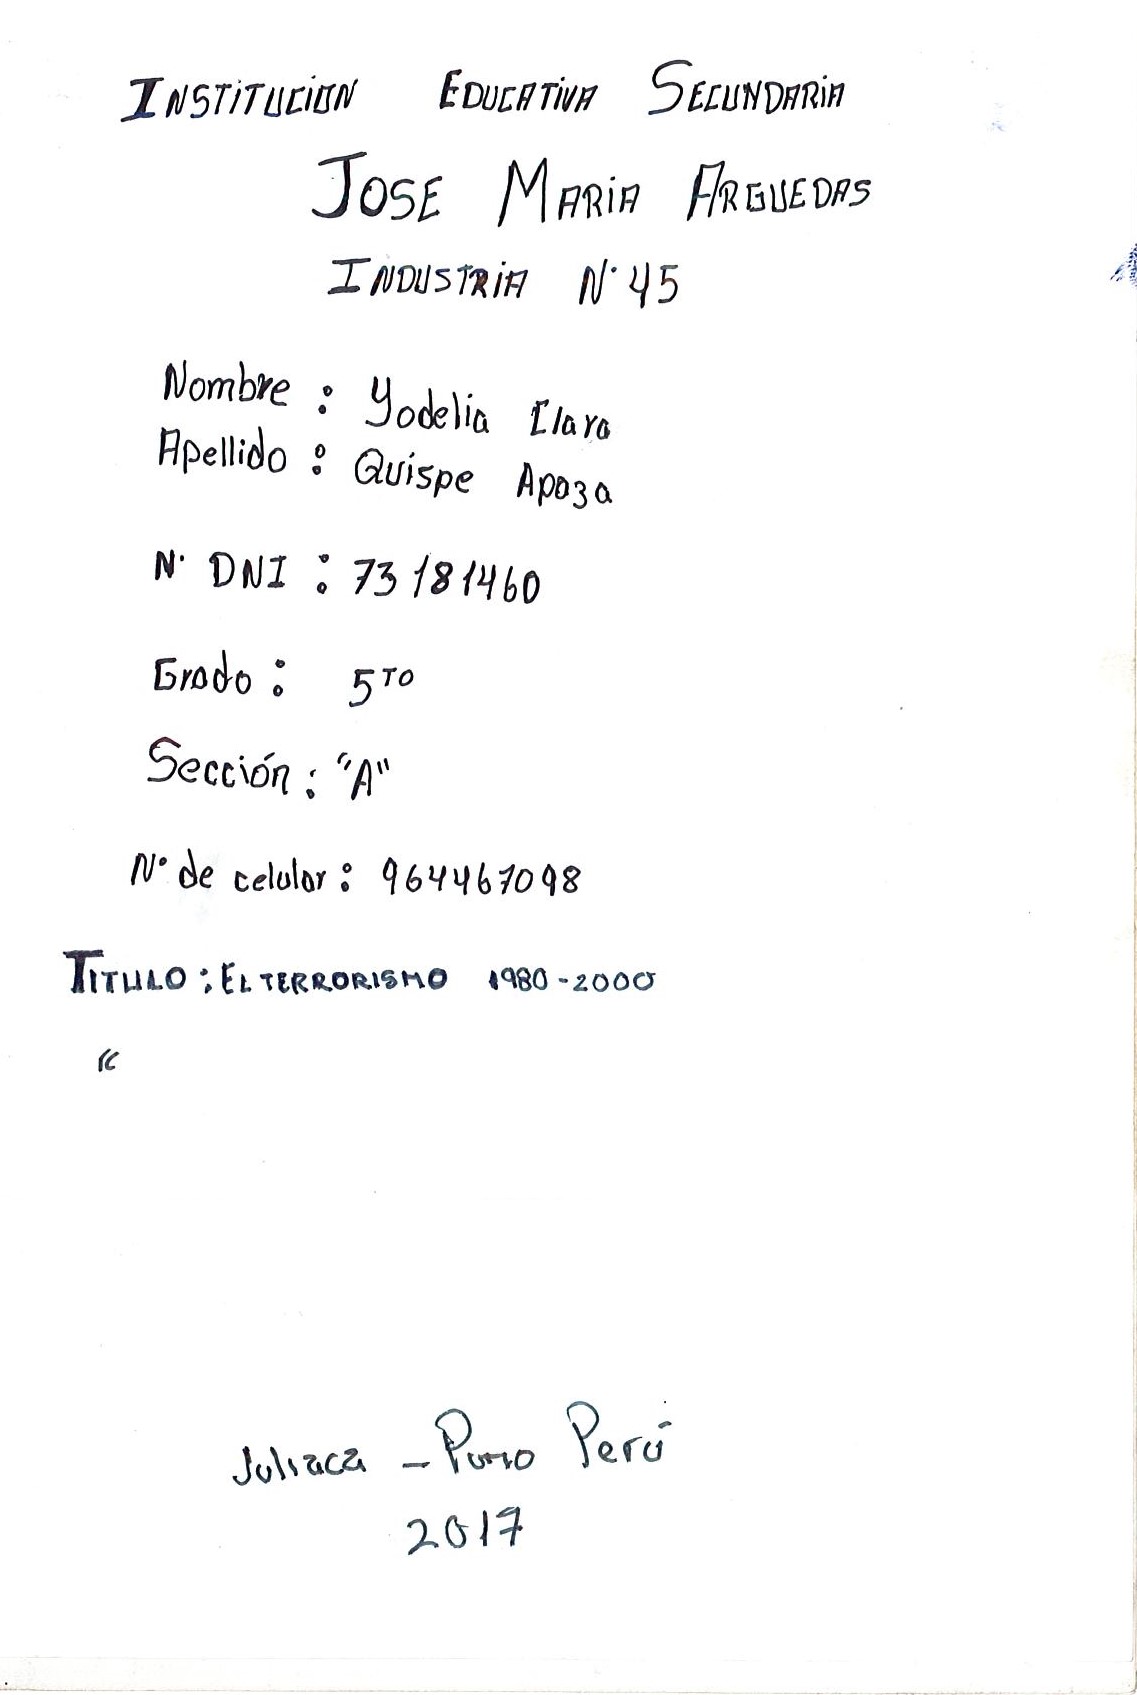 INSTITUCION EDUCATIVA SECUNDARIA
JOSE MARIA ARGUEDAS
INDUSTRIA N° 45
Nombre : Yodelia Clara
Apellido : Quispe Apaza
N° DNI : 73181460
Grado : 5TO
Sección : "A"
N° de celular : 964467098
TITULO : EL TERRORISMO 1980-2000
"
Juliaca - Puno Perú
2017